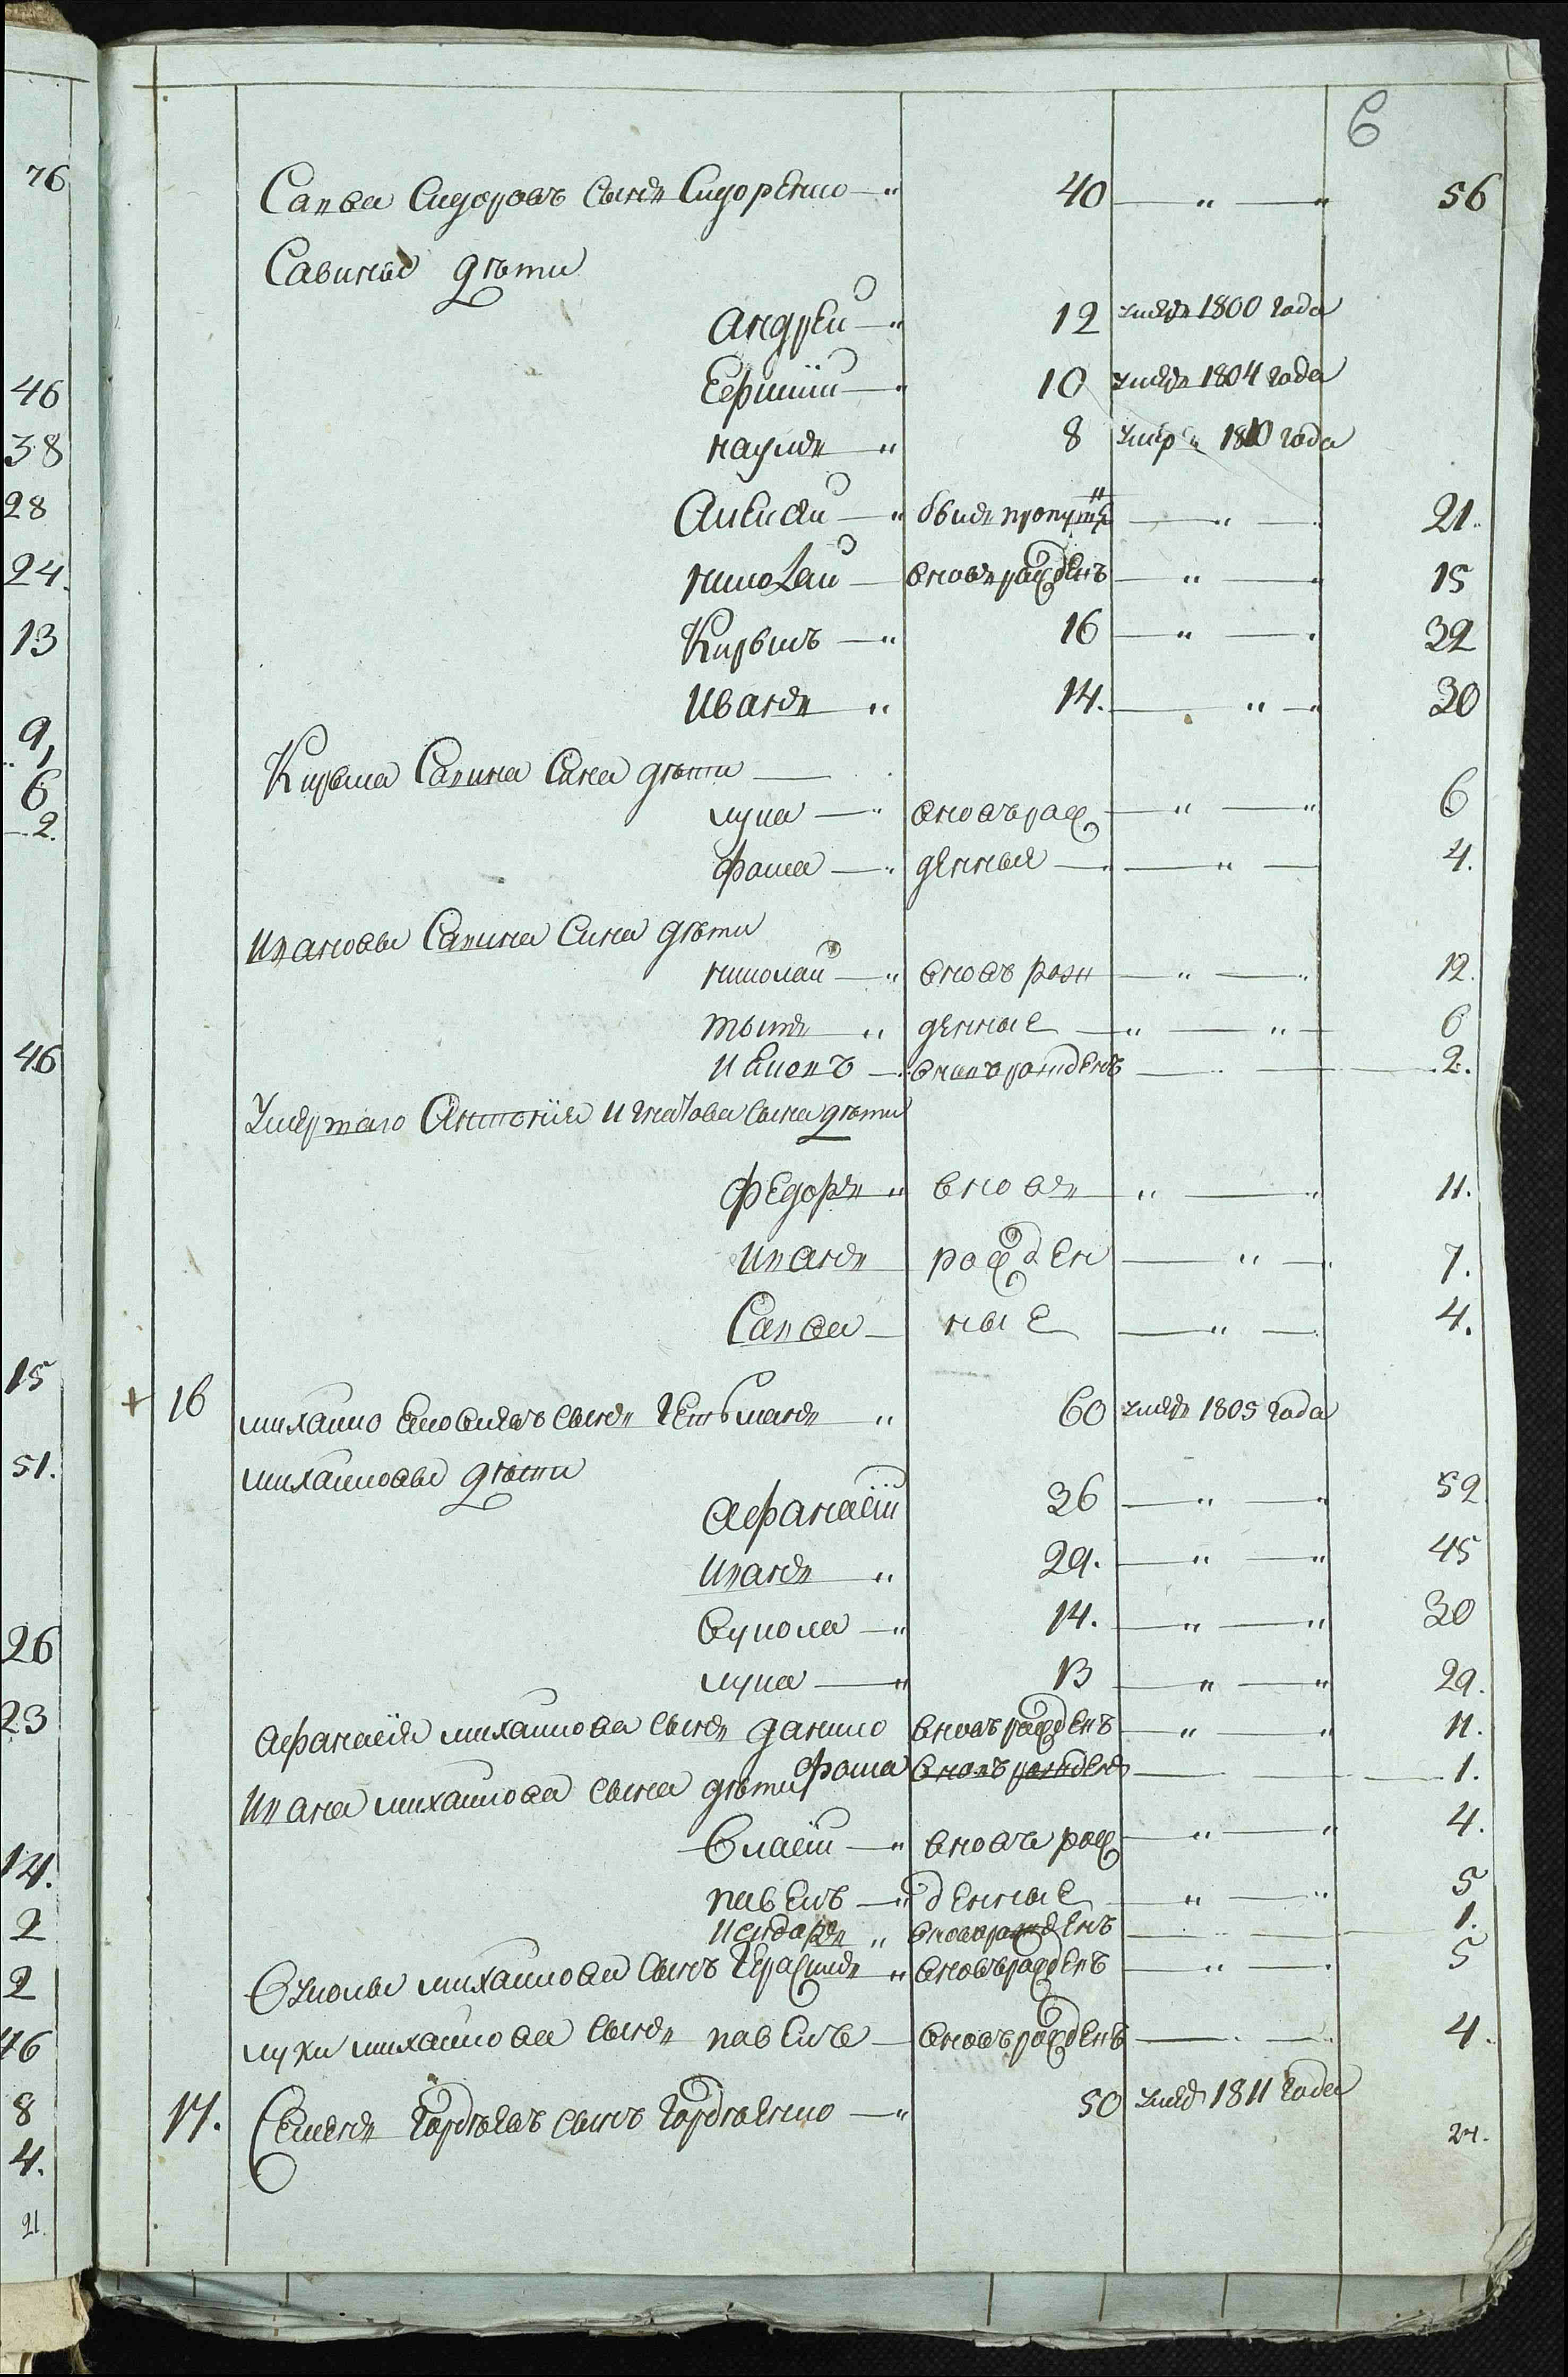 6
Савва Сидоровъ сынъ Сидоренко 40 56
Савины дѣти
Андрей 12 умеръ 1800 года
Ефимий 10 умеръ 1804 года
Наумъ 8 умер 1810 года
Алексей былъ пропущ 21.
Николай вновь рожденъ 15
Кирылъ 16 32
Иванъ 14. 30
Кирыла Савина сина дѣти
Лука вновъ рож 6
Фома денныя 4.
Ивановы Савина сина дѣти
Николай вновъ рож 12.
Титъ денные 6
вновъ рожденъ 2.
Умершаго Антонія Игнатова сына дѣти
Федоръ вновь 11.
Иванъ рожден 7.
Савва ные 4.
16 Михайло сынъ Гетьманъ 60 умеръ 1805 года
Михайловы дѣти
Афанасій 36 52
Иванъ 29. 45
Вукола 14. 30
Лука 13 29.
Афанасія Михайлова сынъ Данило вновъ рожденъ 11.
Фома вновъ рожденъ 1.
Ивана Михайлова сына дѣти
Власій вновъ рож 4.
Павелъ денные 5
Исидоръ вновъ рожденъ 1.
Вуколы Михайлова сынъ Герасимъ вновъ рожденъ 5
Луки Михайлова сынъ Павелъ вновъ рожденъ 4.
17. Семенъ Гордѣевъ сынъ Гордѣенко 50 умер 1811 года
24.
76
46
38
28
24.
13
9,
6
2.
46
15
51.
26
23
14.
2
2
46
8
4.
21.